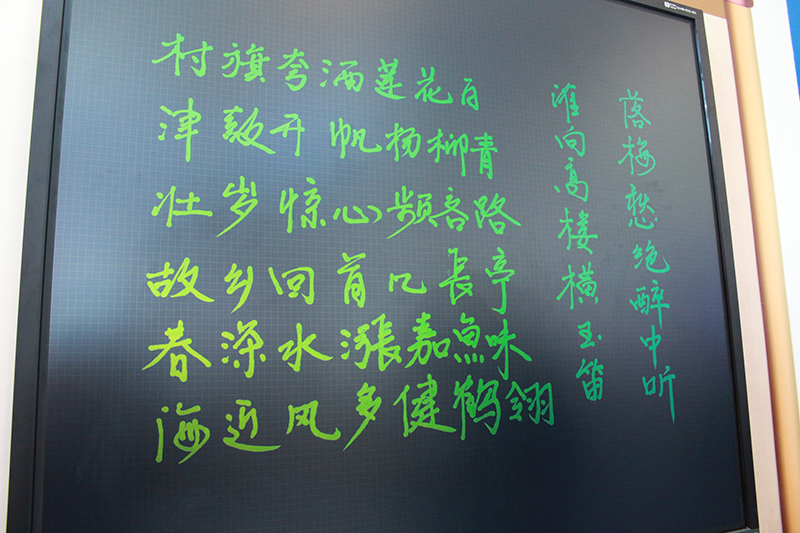 村旗夸酒莲花白
津鼓开帆杨柳青
壮岁惊心频客路
故乡回首几長亭
春深水漲嘉魚味
海近风多健鹤翎
谁向高楼横玉笛
落梅愁绝醉中听